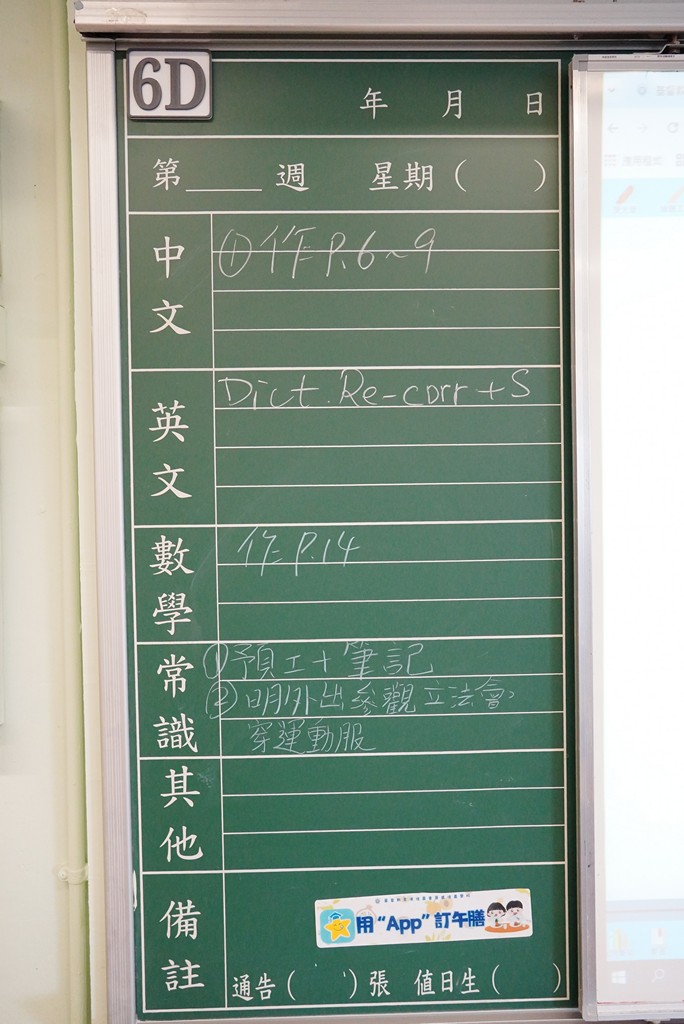 6D
年 月 日
第____週 星期( )
中文
① 作 P.6~9
英文
Dict. Re-corr + S
數學
作 P.14
常識
① 預工+筆記
② 明外出參觀立法會,
穿運動服
其他
備註
用“App”訂午膳
通告( )張 值日生( )